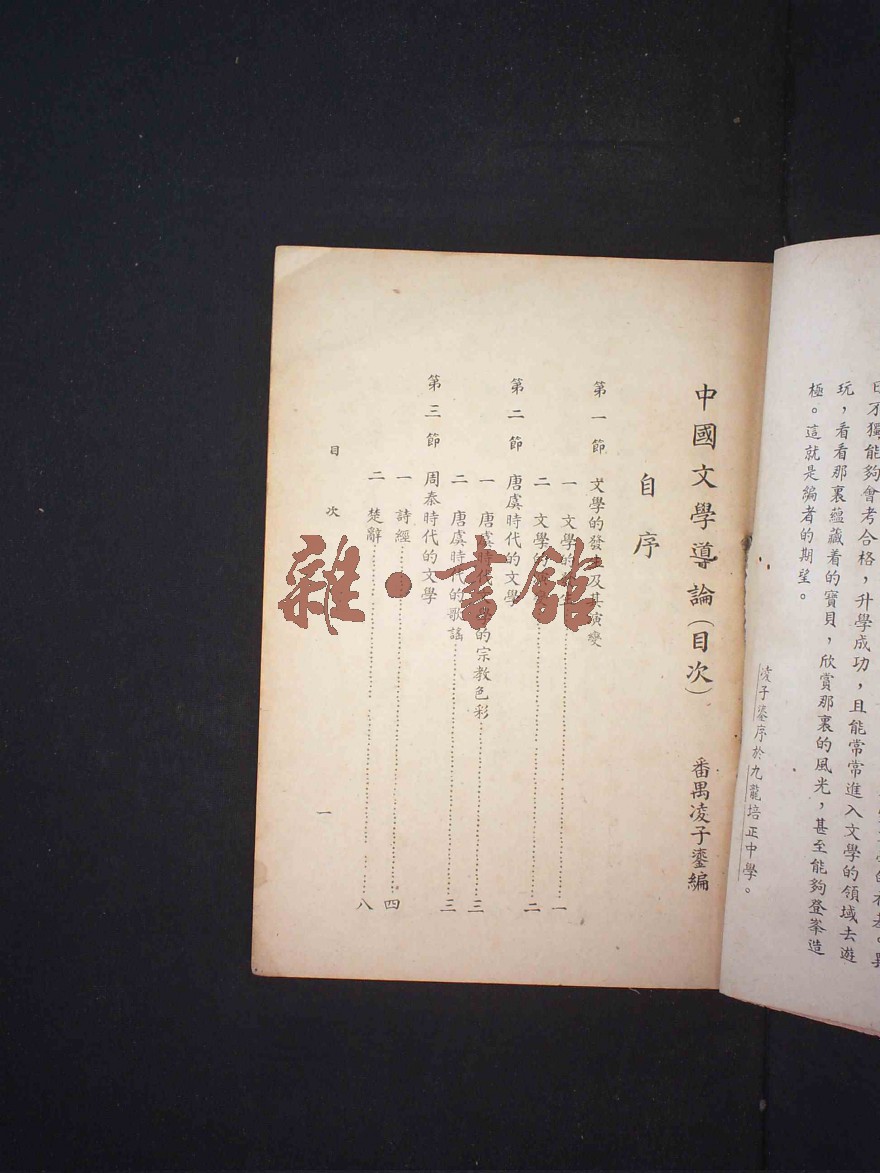 玩，看看那裏蘊藏着的寶貝，欣賞那裏的風光，甚至能夠登峯造
極。這就是編者的期望。
凌子鎏序於九龍培正中學。
中國文學導論（目次）
番禺凌子鎏編
自序
第一節 文學的發生及其演變
一 文學的⋯⋯一
二 文學的⋯⋯二
第二節 唐虞時代的文學
一 唐虞時代文學的宗教色彩⋯⋯三
二 唐虞時代的歌謠⋯⋯三
第三節 周秦時代的文學
一 詩經⋯⋯四
二 楚辭⋯⋯八
目次
一
雜·書館